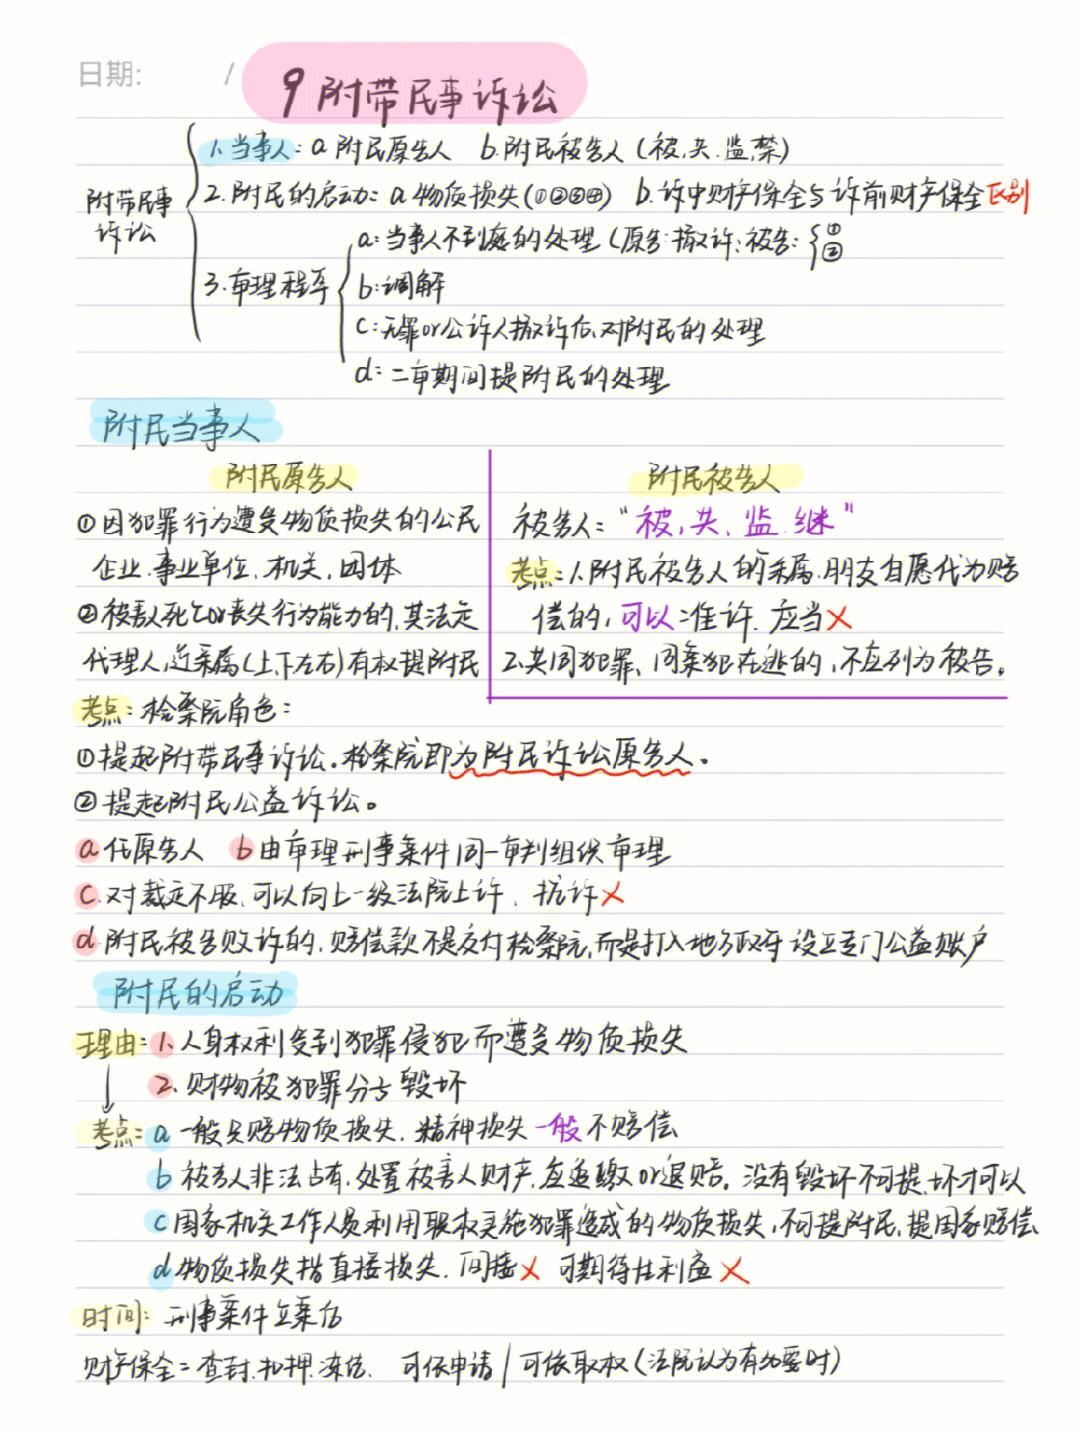 日期: /
9 附带民事诉讼
1.当事人: a 附民原告人 b.附民被告人(被,共.监,禁)
附带民事诉讼
2.附民的启动: a 物质损失(①②③④) b.诉中财产保全与诉前财产保全区别
3.审理程序
a:当事人不到庭的处理(原告:撤诉;被告:{① ②
b:调解
c:无罪or公诉人撤诉后,对附民的处理
d:二审期间提附民的处理
附民当事人
附民原告人
①因犯罪行为遭受物质损失的公民
企业.事业单位、机关,团体
②被害人死亡or丧失行为能力的,其法定
代理人,近亲属(上下左右)有权提附民
附民被告人
被告人:“被,共、监.继”
考点:1.附民被告人的亲属.朋友自愿代为赔
偿的,可以准许.应当✗
2.共同犯罪、同案犯在逃的,不应列为被告。
考点:检察院角色:
①提起附带民事诉讼。检察院即为附民诉讼原告人。
②提起附民公益诉讼。
a 代原告人 b 由审理刑事案件同一审判组织审理
c.对裁定不服,可以向上一级法院上诉.抗诉✗
d.附民被告败诉的,赔偿款不是交付检察院,而是打入地方政府设立专门公益账户
附民的启动
理由:1.人身权利受到犯罪侵犯而遭受物质损失
2.财物被犯罪分子毁坏
考点:a 一般只赔物质损失.精神损失一般不赔偿
b 被告人非法占有.处置被害人财产,应追缴or退赔。没有毁坏不可提,坏才可以
c 国家机关工作人员利用职权实施犯罪造成的物质损失,不可提附民,提国家赔偿
d 物质损失指直接损失.间接✗ 可期待性利益✗
时间:刑事案件立案后
财产保全=查封.扣押.冻结. 可依申请/可依职权(法院认为有必要时)